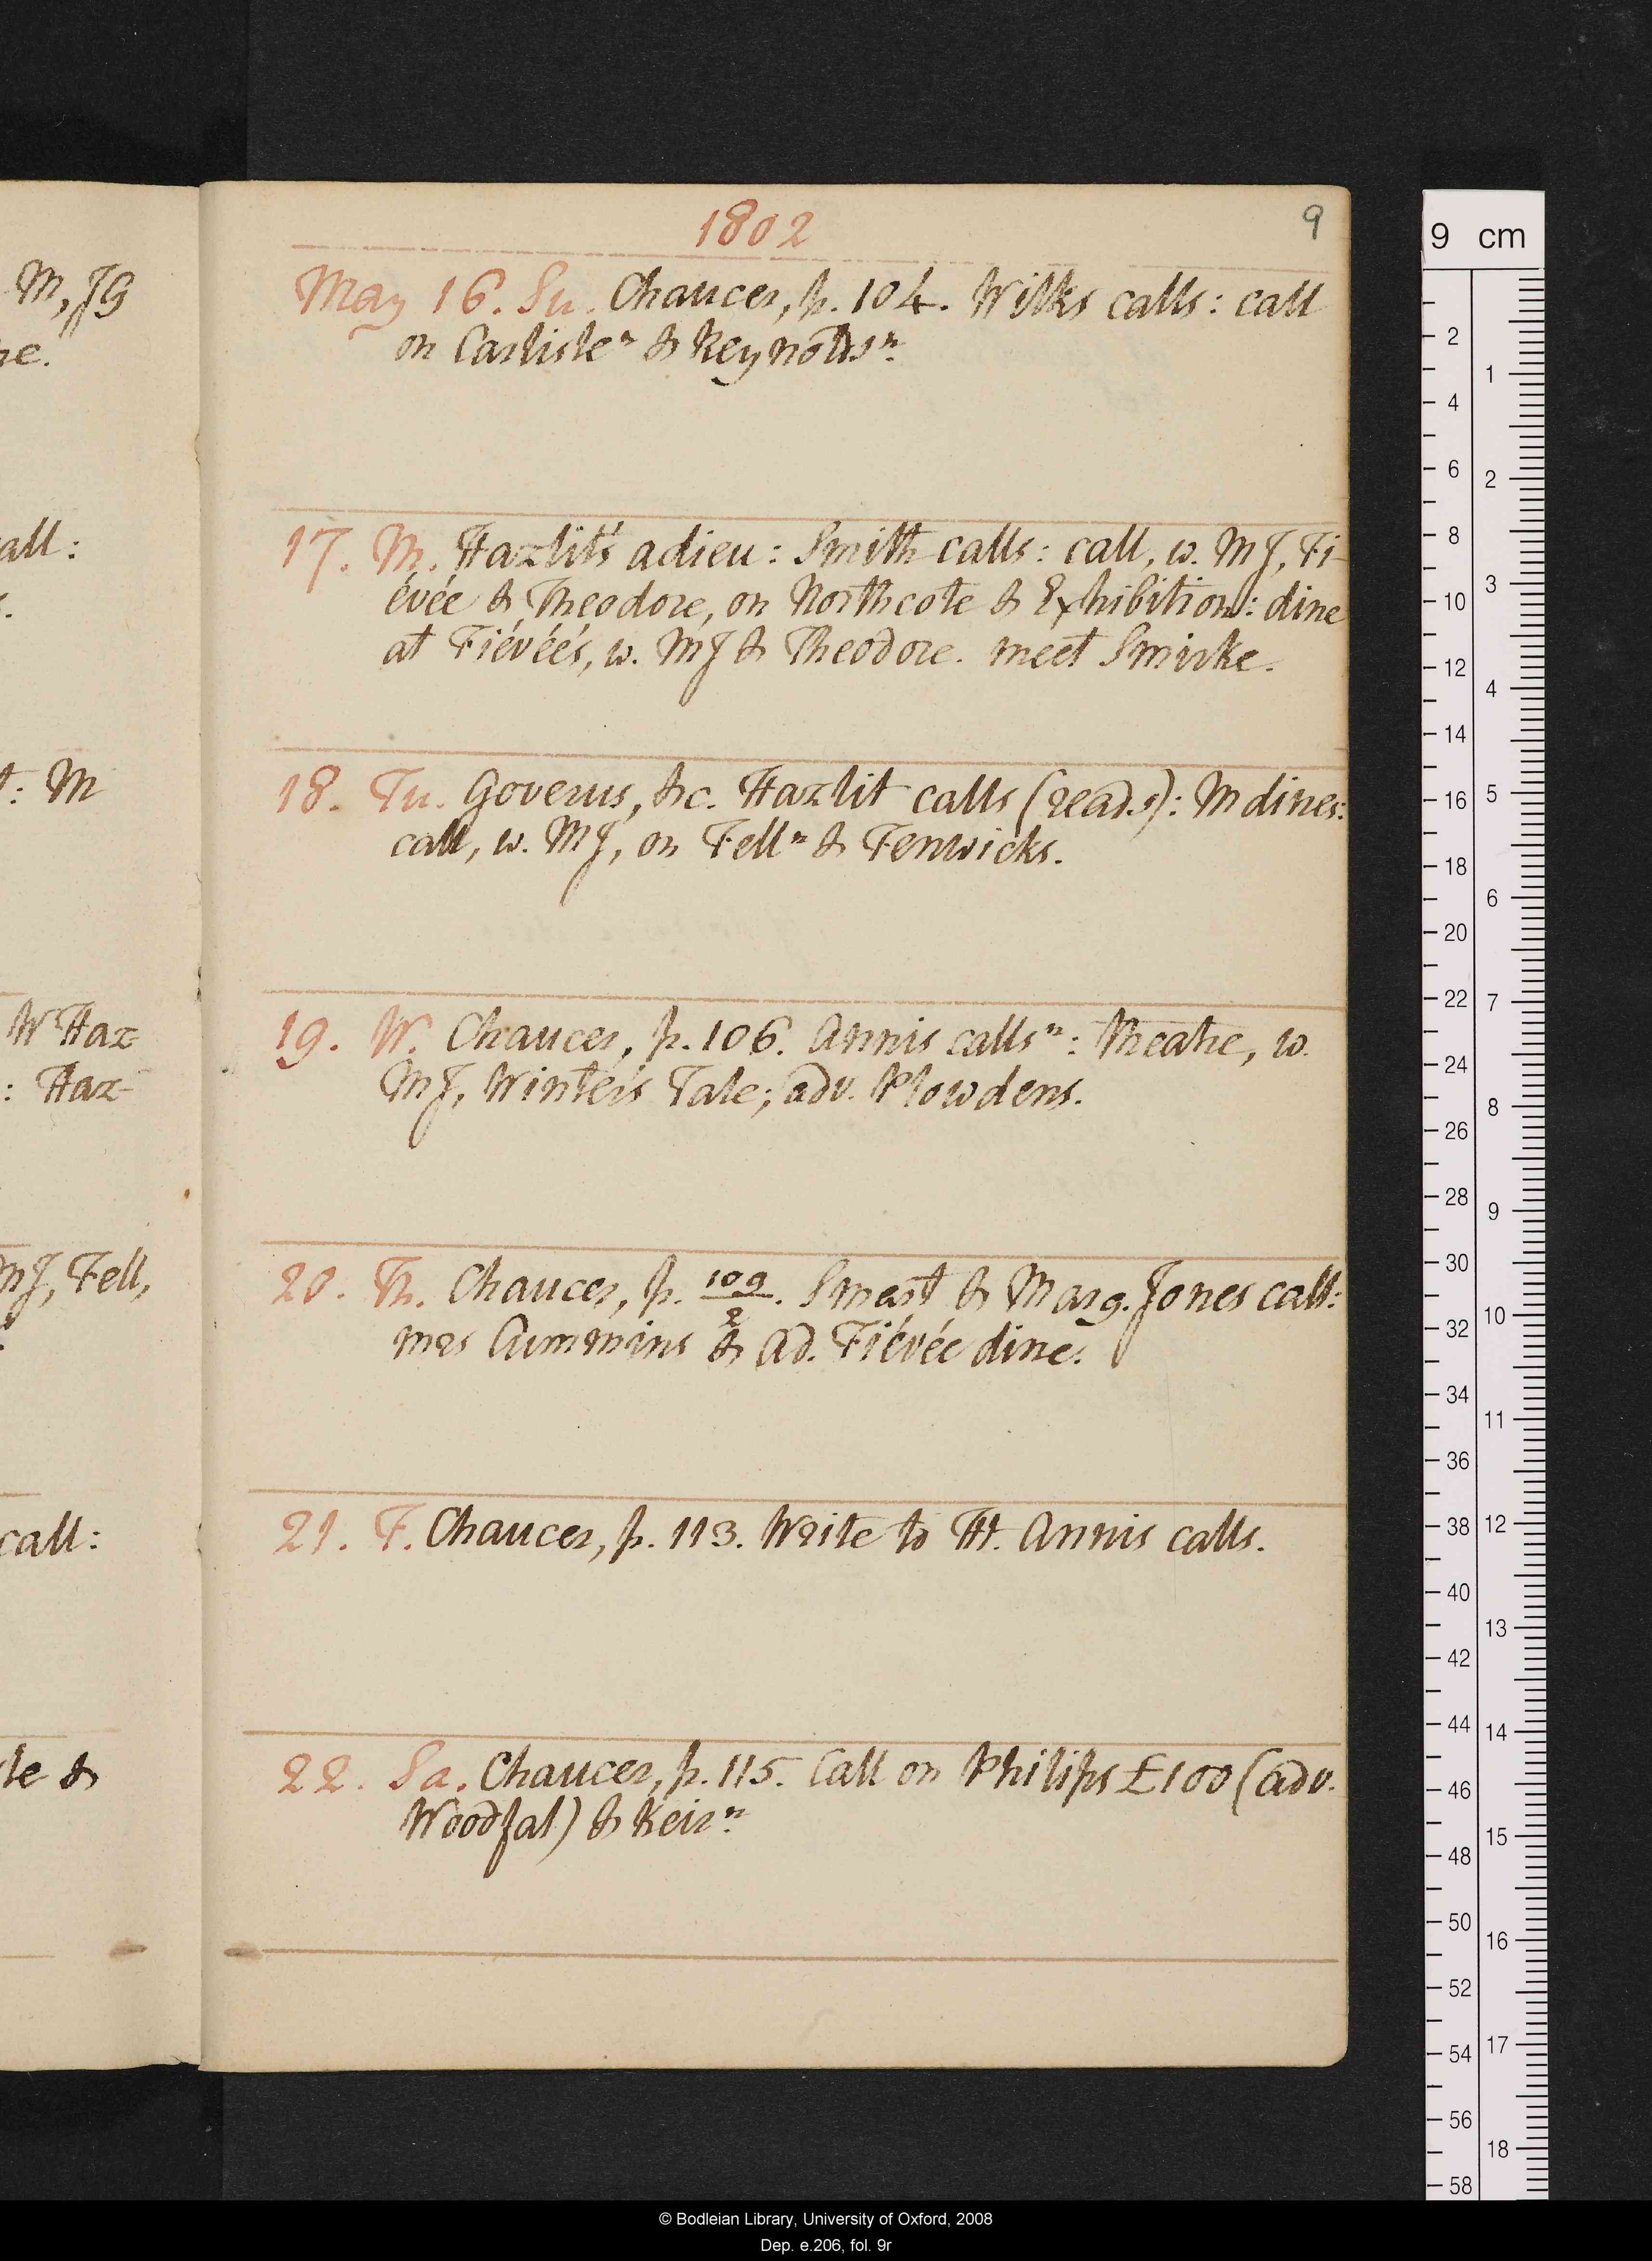 M, JG
ne.
all:
t: M
W Haz-
: Haz-
MJ, Fell,
call:
le &
1802
9
May 16. Su. Chaucer, p. 104. Wilks calls: call
on Carlisle n & Reynolds n.
17. M. Hazlit's adieu: Smith calls: call, w. MJ, Fi-
évée & Theodore, on Northcote & Exhibition: dine
at Fiévée's, w. MJ & Theodore. meet Smirke.
18. Tu. Goverus, &c. Hazlit calls (read.s): M dines:
call, w. MJ, on Fell n & Fenwicks.
19. W. Chaucer, p. 106. Annis calls n: theatre, w.
MJ, Winter's Tale; adv. Plowdens.
20. Th. Chaucer, p. 109/2. Smart & Marg. Jones call:
mrs Cummins & Ad. Fiévée dine.
21. F. Chaucer, p. 113. Write to Ht. Annis calls.
22. Sa. Chaucer, p. 115. Call on Philips £100 (adv.
Woodfal) & Keir n.
9 cm
2 4 6 8 10 12 14 16 18 20 22 24 26 28 30 32 34 36 38 40 42 44 46 48 50 52 54 56 58
1 2 3 4 5 6 7 8 9 10 11 12 13 14 15 16 17 18
© Bodleian Library, University of Oxford, 2008
Dep. e.206, fol. 9r